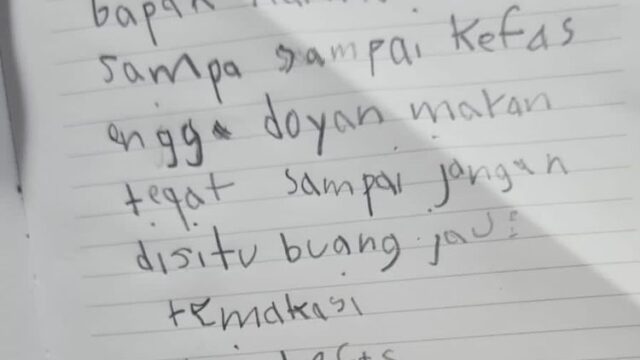 bapak
sampa sampai kefas
engga doyan makan
teqat sampai jangan
disitu buang jau
temakasi